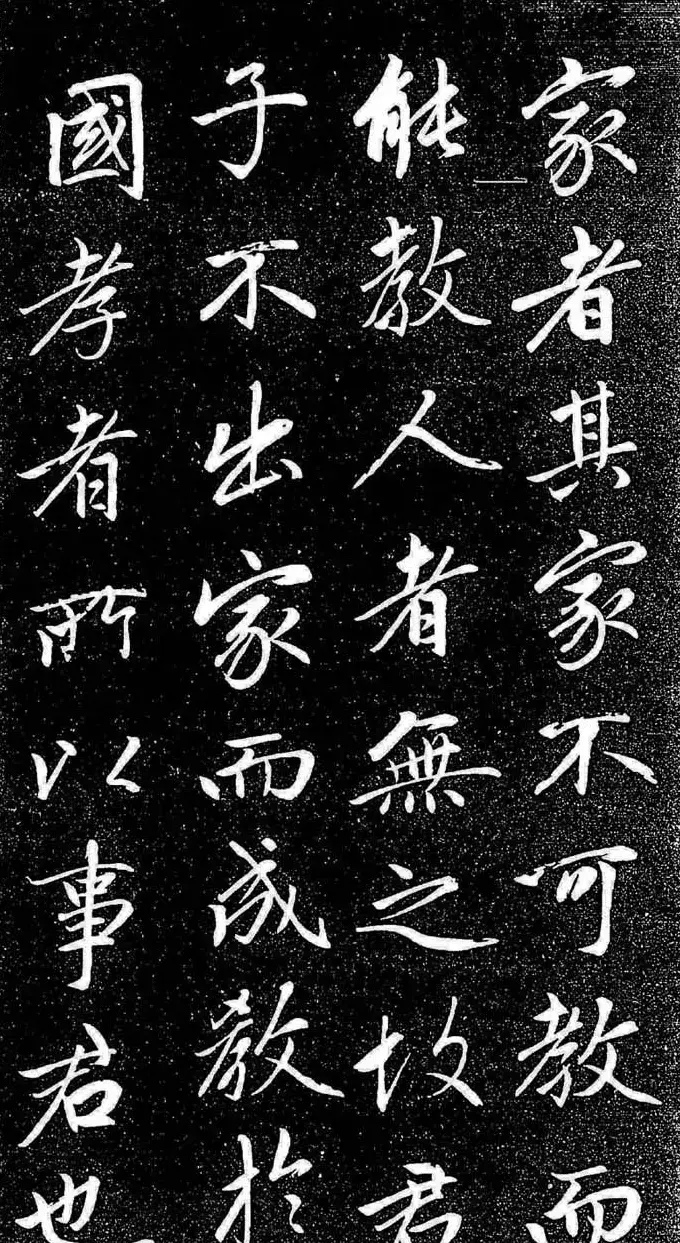 家者其家不可教而
能教人者無之故君
子不出家而成教於
國孝者所以事君也